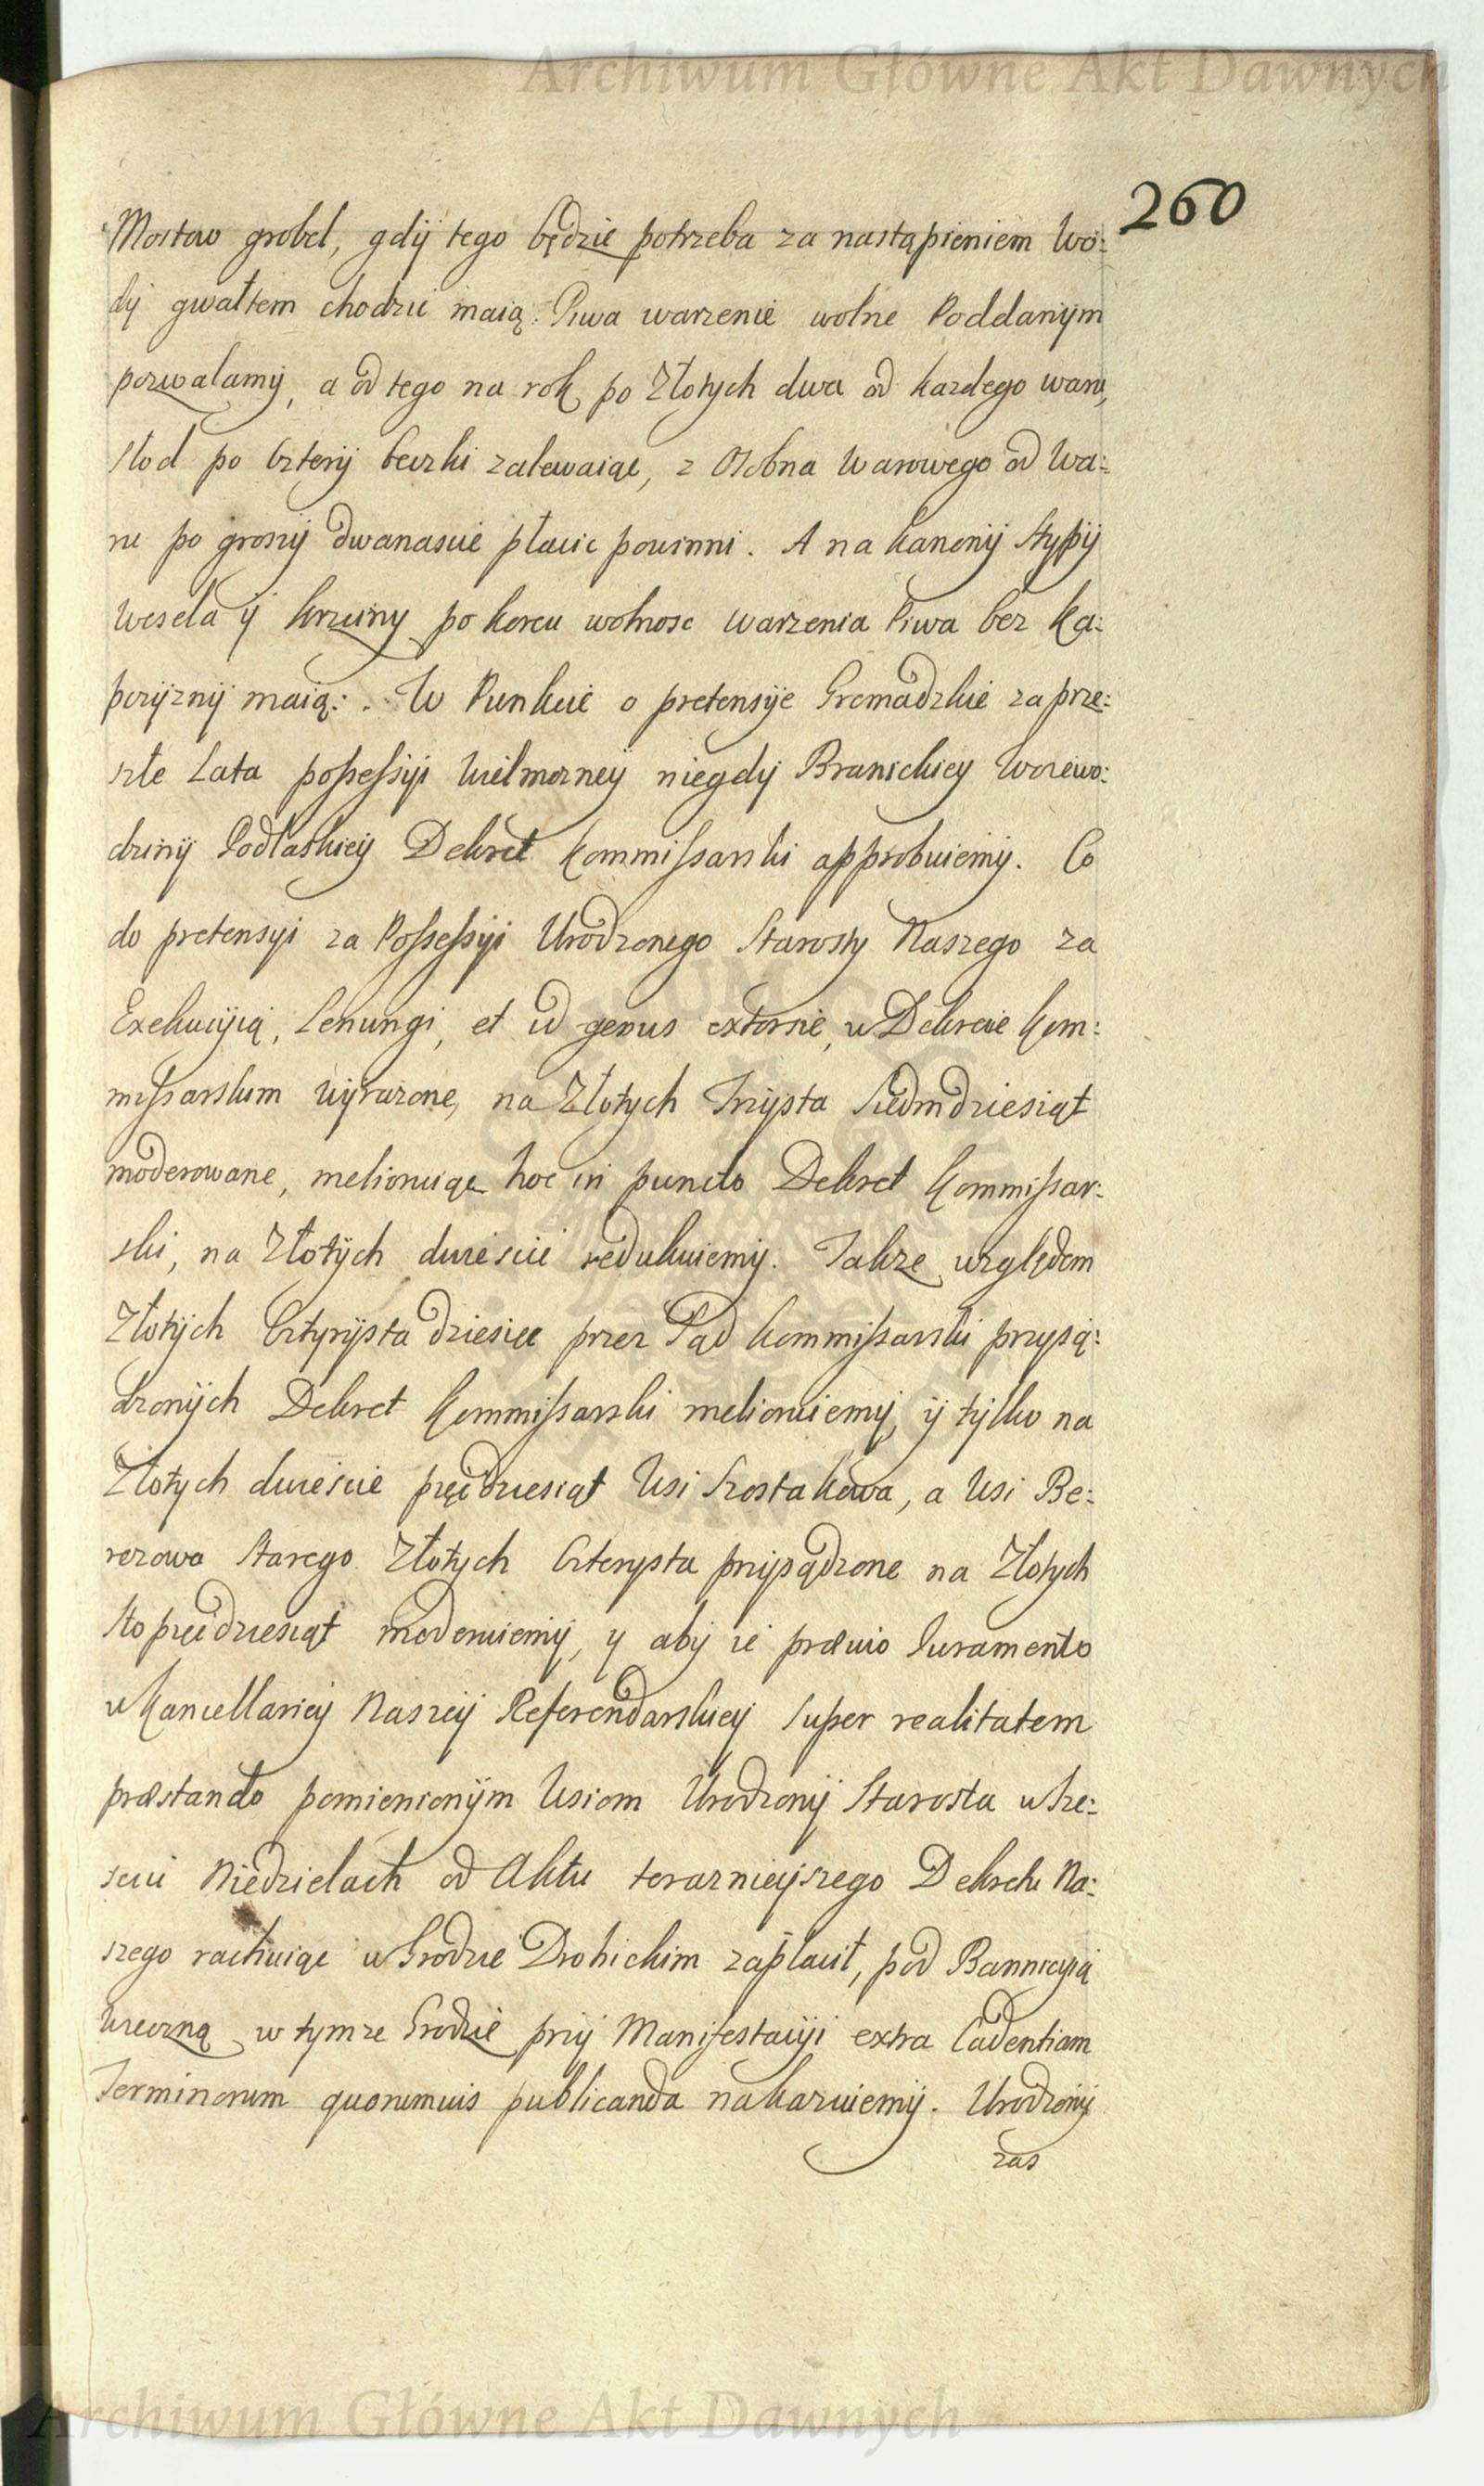 Archiwum Główne Akt Dawnych
260
Mostow grobel, gdÿ tego będzie potrzeba za nastąpieniem Wo:
dÿ gwałtem chodzic maią. Piwa warzenie wolne Poddanÿm
pozwalamÿ, a od tego na rok po Złotych dwa od kazdego waru,
słod po czterÿ beczki zalewaiąc, z osobna warowego od Wa:
ru po groszÿ dwanascie płacic powinni. A na kanonÿ Stypÿ
Wesela ÿ krzciny po korcu wolnosc warzenia Piwa bez Ka:
pczÿznÿ maią: . W Punkcie o pretensÿe Gromadzkie za prze:
szłe Lata possessÿi Wielmozneÿ niegdÿ Branickieÿ Woiewo:
dzinÿ Podlaskieÿ Dekret Kommissarski approbuiemÿ. Co
do pretensyi za Possessÿi Urodzonego Starosty Naszego za
Exekucÿią, Lenungi, et id genus extorsie, w Dekrecie Kom:
missarskim wÿrazone, na Złotych Trzÿsta Siedmdziesiąt
moderowane, melioruiąc hoc in puncto Dekret Kommissar:
ski, na Złotÿch dwiescie redukuiemÿ. Takze względem
Złotÿch Cztyrÿsta dziesięc przez Sąd Kommissarski przysą:
dzonÿch Dekret Kommissarski melioruiemÿ, ÿ tÿlko na
Złotych dwiescie pięcdziesiąt Wsi Szostakowa, a Wsi Be:
rezowa Starego Złotÿch Czterysta przÿsądzone na Złotych
Sto pięcdziesiąt moderuiemÿ, y abÿ ie prævio Iuramento
w Kancellarieÿ Naszeÿ Referendarskieÿ super realitatem
præstando pomienionÿm Wsiom Urodzonÿ Starosta w Sze:
sciu Niedzielach od Aktu terazniejszego Dekretu Na:
szego rachuiąc w Grodzie Drohickim zapłacił, pod Bannicyią
wieczną w tymze Grodzie przÿ Manifestacÿi extra Cadentiam
Terminorum quorumvis publicanda nakazuiemÿ. Urodzonÿ
zas
Archiwum Główne Akt Dawnych